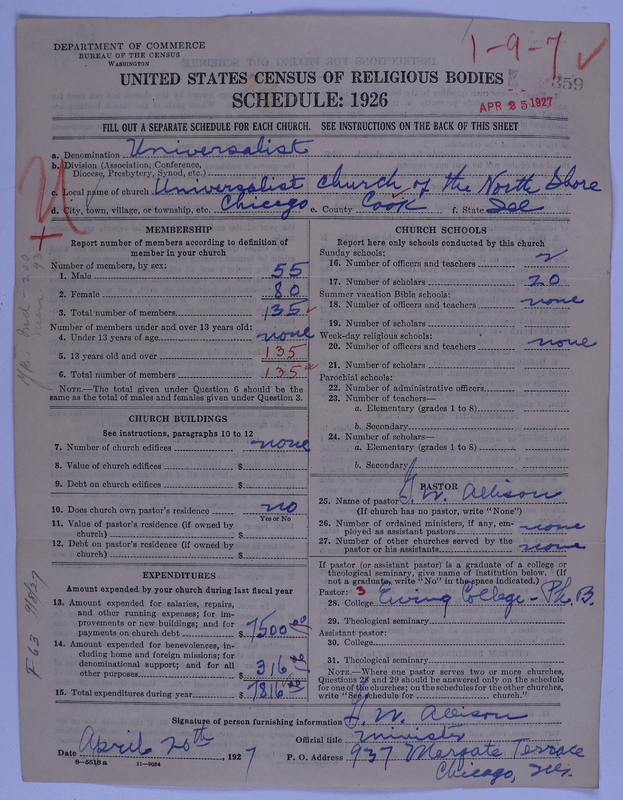 DEPARTMENT OF COMMERCE
BUREAU OF THE CENSUS
WASHINGTON
1-9-7 ✓
UNITED STATES CENSUS OF RELIGIOUS BODIES
359
SCHEDULE: 1926
APR 25 1927
FILL OUT A SEPARATE SCHEDULE FOR EACH CHURCH. SEE INSTRUCTIONS ON THE BACK OF THIS SHEET
a. Denomination Universalist
b. Division (Association, Conference,
Diocese, Presbytery, Synod, etc.)
c. Local name of church Universalist Church of the North Shore
d. City, town, village, or township, etc. Chicago e. County Cook f. State Ill
MEMBERSHIP
Report number of members according to definition of
member in your church
Number of members, by sex:
1. Male 55
2. Female 80
3. Total number of members 135
Number of members under and over 13 years old:
4. Under 13 years of age none
5. 13 years old and over 135
6. Total number of members 135
NOTE.—The total given under Question 6 should be the
same as the total of males and females given under Question 3.
CHURCH BUILDINGS
See instructions, paragraphs 10 to 12
7. Number of church edifices none
8. Value of church edifices $
9. Debt on church edifices $
10. Does church own pastor's residence no
Yes or No
11. Value of pastor's residence (if owned by
church) $
12. Debt on pastor's residence (if owned by
church) $
EXPENDITURES
Amount expended by your church during last fiscal year
13. Amount expended for salaries, repairs,
and other running expenses; for im-
provements or new buildings; and for
payments on church debt $ 7500 00
14. Amount expended for benevolences, in-
cluding home and foreign missions; for
denominational support; and for all
other purposes $ 316 00
15. Total expenditures during year $ 7816 00
CHURCH SCHOOLS
Report here only schools conducted by this church
Sunday schools:
16. Number of officers and teachers 2
17. Number of scholars 20
Summer vacation Bible schools:
18. Number of officers and teachers none
19. Number of scholars
Week-day religious schools:
20. Number of officers and teachers none
21. Number of scholars
Parochial schools:
22. Number of administrative officers
23. Number of teachers—
a. Elementary (grades 1 to 8)
b. Secondary
24. Number of scholars—
a. Elementary (grades 1 to 8)
b. Secondary
PASTOR
25. Name of pastor W. Allison
(If church has no pastor, write "None")
26. Number of ordained ministers, if any, em-
ployed as assistant pastors none
27. Number of other churches served by the
pastor or his assistants none
If pastor (or assistant pastor) is a graduate of a college or
theological seminary, give name of institution below. (If
not a graduate, write "No" in the space indicated.)
Pastor: 3
28. College Ewing College - Ph. B.
29. Theological seminary
Assistant pastor:
30. College
31. Theological seminary
NOTE.—Where one pastor serves two or more churches,
Questions 28 and 29 should be answered only on the schedule
for one of the churches; on the schedules for the other churches,
write "See schedule for church."
Signature of person furnishing information W. Allison
Official title Minister
Date April 20th, 1927
P. O. Address 937 Margate Terrace
Chicago, Ill.
8-5518a 11-9024